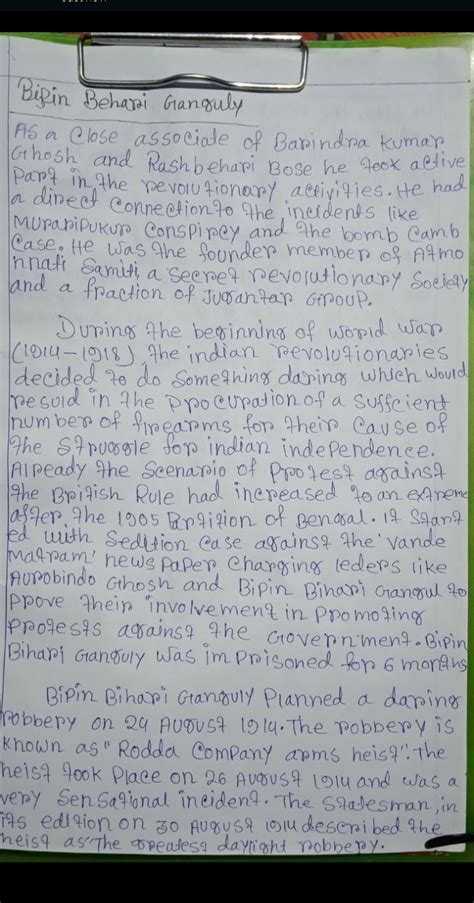 Bipin Behari Ganguly
As a close associate of Barindra Kumar
Ghosh and Rashbehari Bose he took active
Part in the revolutionary activities. He had
a direct connection to the incidents like
Muraripukur Conspircy and the bomb Camb
Case. He was the founder member of Atmo
nnati Samiti a secret revolutionary Society
and a fraction of Jugantar Group.
During the beginning of world war
(1914-1918) the indian revolutionaries
decided to do something daring which would
resuld in the procuration of a suffcient
number of firearms for their cause of
the struggle for indian independence.
Already the scenario of protest against
the British Rule had increased to an extreme
after the 1905 Partition of Bengal. it start
ed with Sedition case against the 'vande
Matram' news paper charging leders like
Aurobindo Ghosh and Bipin Bihari Gangul to
prove their involvement in promoting
protests against the Government. Bipin
Bihari Ganguly was imprisoned for 6 months
Bipin Bihari Ganguly planned a daring
robbery on 24 August 1914. The robbery is
known as "Rodda Company arms heist". The
heist took place on 26 August 1914 and was a
very sensational incident. The Statesman, in
its edition on 30 August 1914 described the
heist as "The greatest daylight robbery.